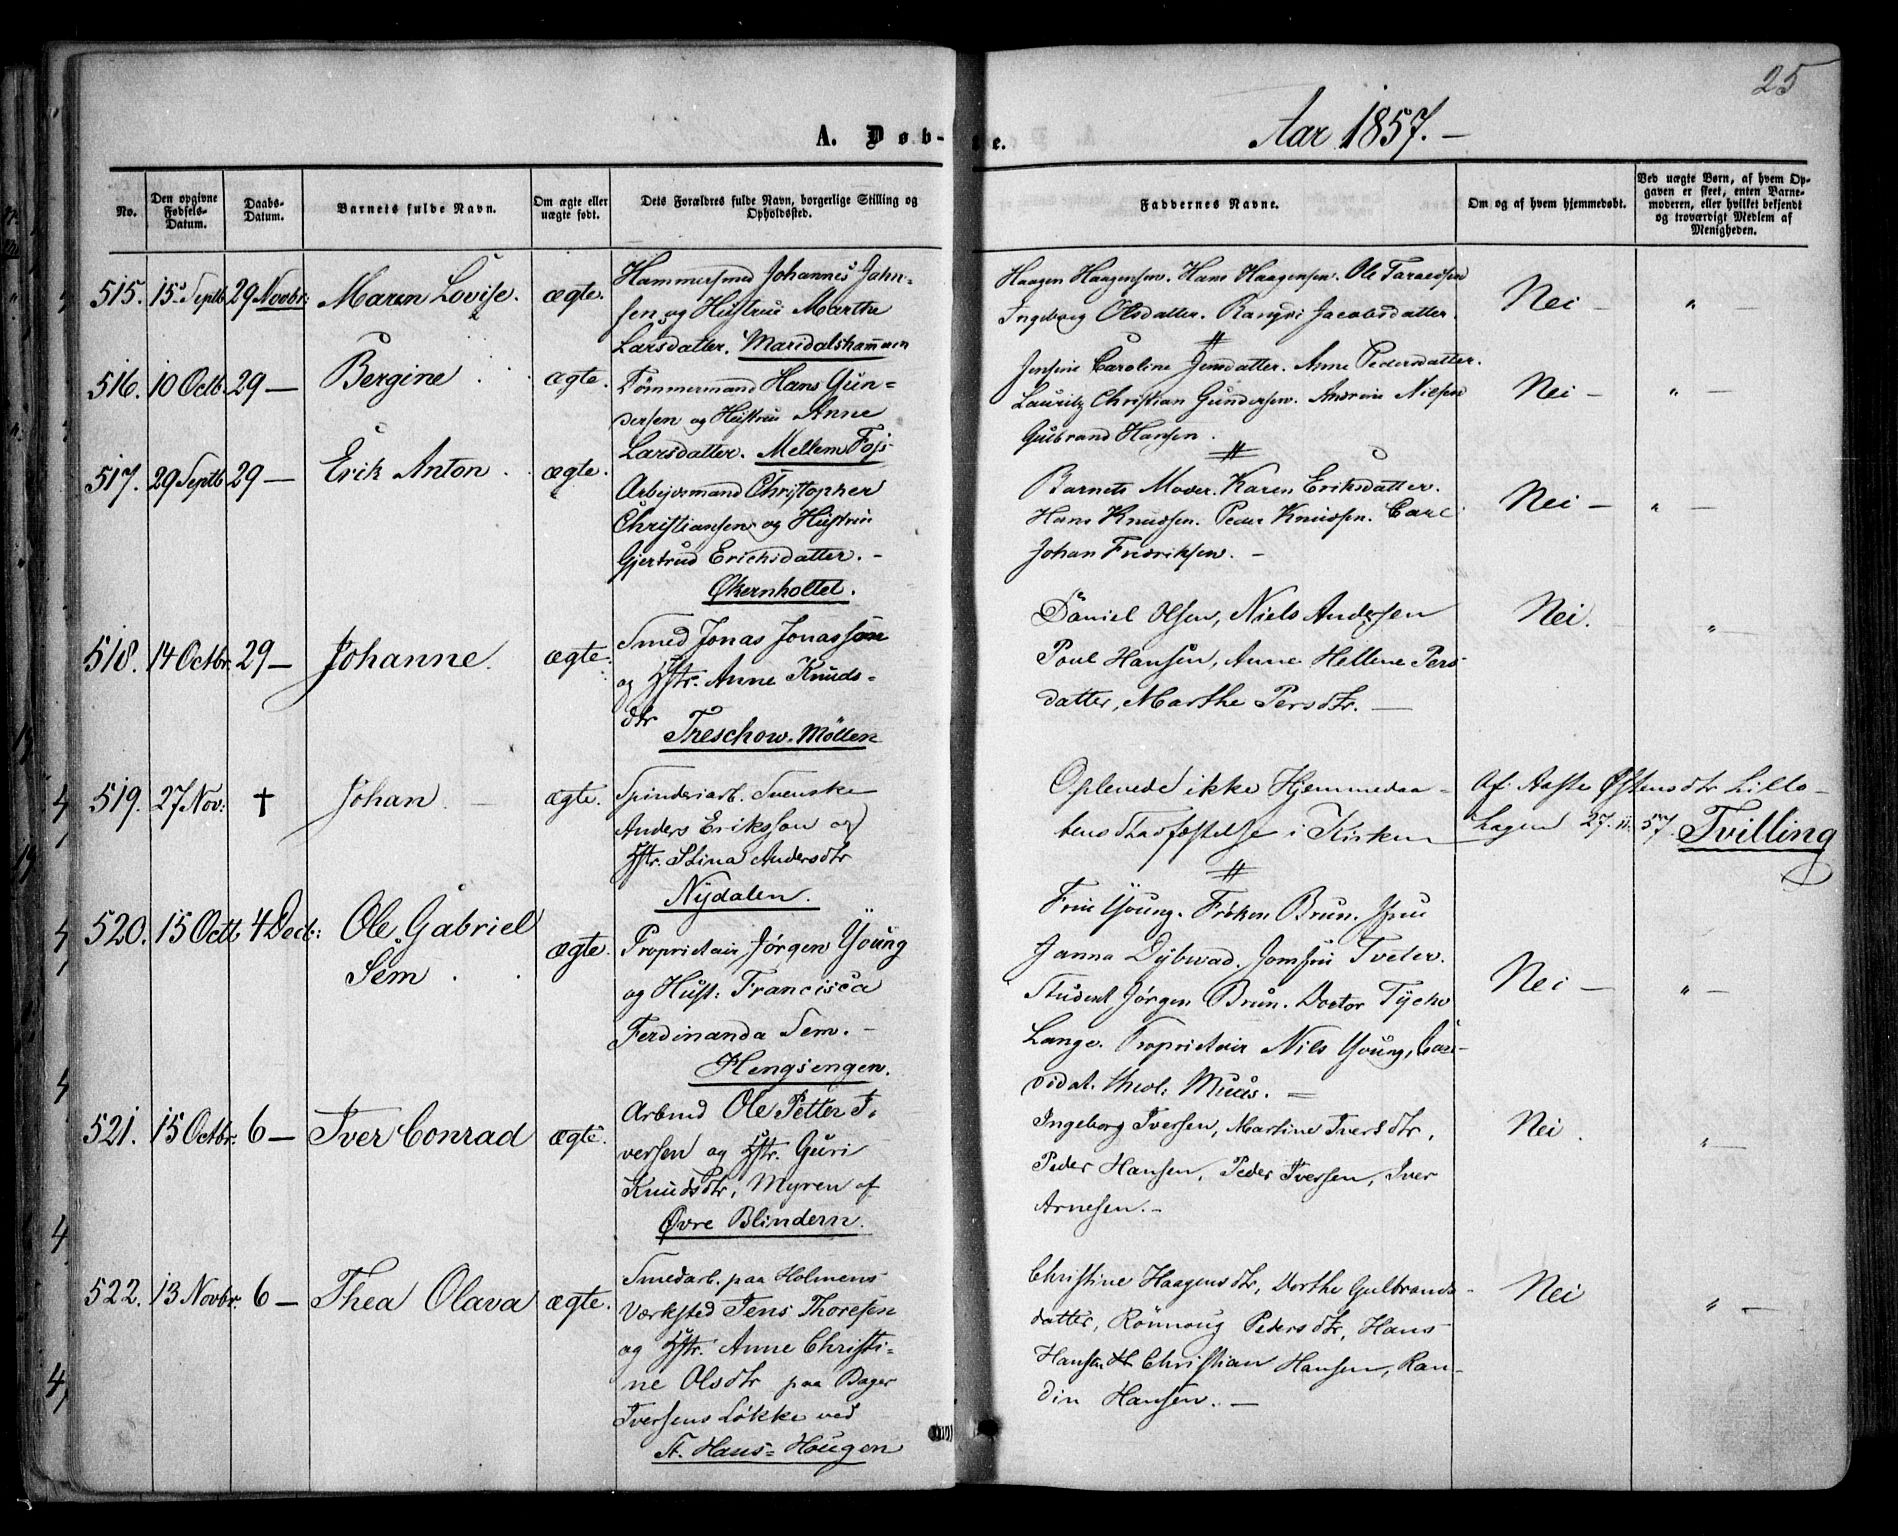 25
Aar 1857. —
A. Døb-
te.
No.
Den opgivne Fødsels-Datum.
Daabs-Datum.
Barnets fulde Navn.
Om ægte eller uægte født.
Dets Forældres fulde Navn, borgerlige Stilling og Opholdssted.
Faddernes Navne.
Om og af hvem hjemmedøbt.
Ved uægte Børn, af hvem Opgaven er skeet, enten Barnemoderen, eller hvilket bekjendt og troværdigt Medlem af Menigheden.
515. 15 Septb 29 Novbr: Maren Lovise. ægte.
Hammersmed Johannes Jahn-
sen og Hustru Marthe
Larsdatter. Maridalshammeren
Haagen Haagensen. Hans Haagensen. Ole
Ingeborg Olsdatter. Rangni Jacobsdatter.
Nei — " —
516. 10 Octb. 29 — Bergine ægte.
Tømmermand Hans Gun-
dersen og Hustru Anne
Larsdatter. Mellem Fos
Jensine Caroline Jensdatter. Anne Pedersdatter.
Lauritz Christian Gundersen. Andrine Nielsen
Gulbrand Hansen.
Nei — " —
517. 29 Septb 29 — Erik Anton. ægte.
Arbejdsmand Christopher
Christiansen og Hustru
Gjertrud Erichsdatter. —
Økernholtet.
Barnets Moder. Karen Eriksdatter.
Hans Knudsen. Peder Knudsen. Carl
Johan Fredriksen. —
Nei — " —
518. 14 Octbr. 29 — Johanne. ægte.
Smed Jonas Jonassøn
og Hstr. Anne Knuds-
dtr
Treschow-Möllen
Daniel Olsen, Niels Andersen
Poul Hansen, Anne Hellene Pers-
datter, Marthe Persdtr. —
Nei. " —
519. 27 Nov: † Johan. — ægte.
Spinderiarb. Svenske
Anders Eriksson og
Hstr. Stina Andersdtr
Nydalen.
Oplevede ikke Hjemmedaa-
bens Stadfæstelse i Kirken
Af Aaste Østensdtr Lillo-
hagen 27. 11. 57. Tvilling
520. 15 Octb 4 Decb: Ole Gabriel
Sem. ægte.
Proprietair Jørgen Young
og Hust: Francisca
Ferdinanda Sem. —
Hengsengen.
Fru Young. Frøken Brun. Fru
Janna Dybwad. Jomfru Tveter.
Student Jørgen Brun. Doctor Tycho
Lange. Proprietair Nils Young, Can-
didat. theol: Muus. =
Nei — " —
521. 15 Octbr: 6 — Iver Conrad ægte.
Arbmd Ole Petter I-
versen og Hstr. Guri
Knudsdtr, Myren af
Øvre Blindern.
Ingeborg Iversen, Martine Iversdtr,
Peder Hansen, Peder Iversen, Iver
Arnesen. —
Nei. " —
522. 13 Novbr. 6 — Thea Olava ægte.
Smedarb. paa Holmens
Værksted Jens Thoresen
og Hstr. Anne Christi-
ne Olsdtr paa Bager
Iversens Løkke ved
St. Hans=Hougen
Christine Haagensdtr, Dorthe Gulbrands-
datter, Rønnoug Pedersdtr, Hans
Hansen Christian Hansen, Ran-
din Hansen. —
Nei " —